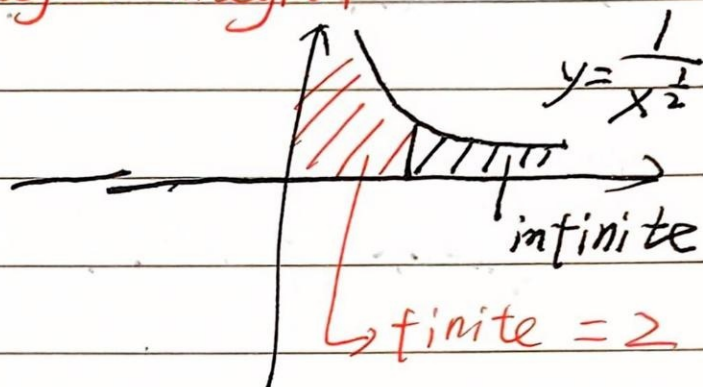 y = 1/x^{1/2}
infinite
finite = 2